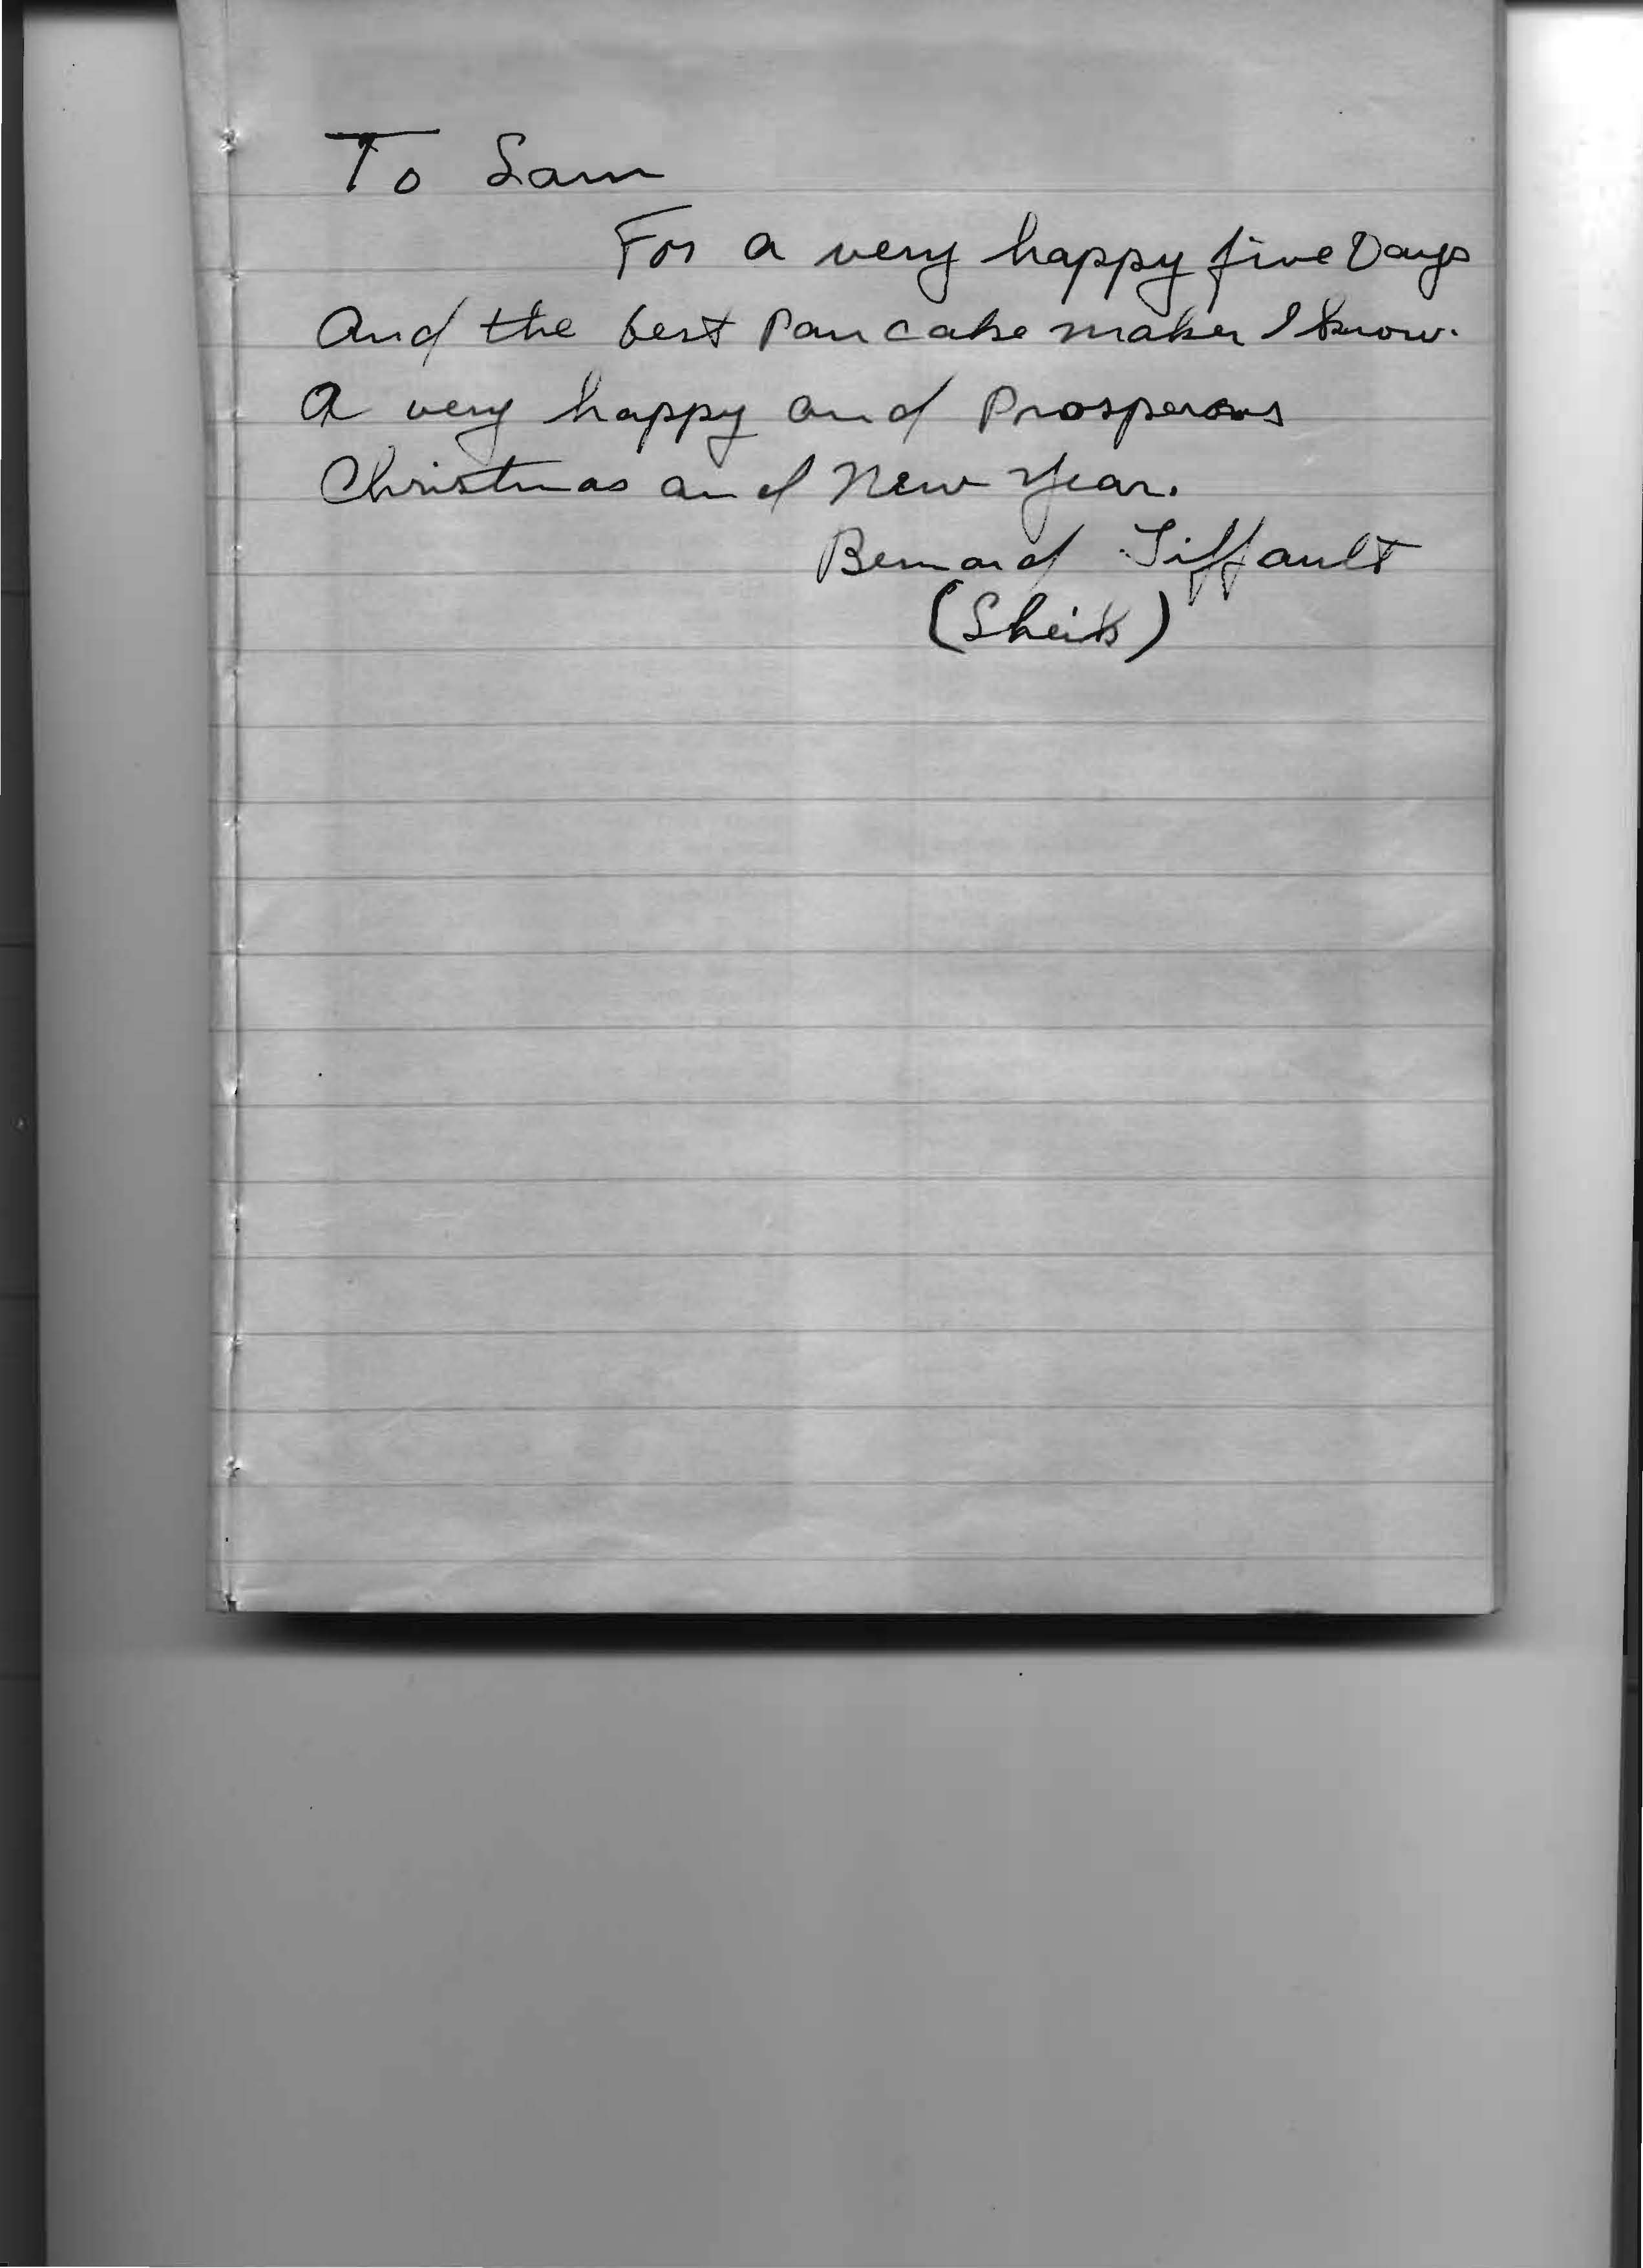 To Sam
For a very happy five Days
And the best Pancake maker I know.
A very happy and Prosperous
Christmas and New Year.
Bernard Tiffault
(Sheik)